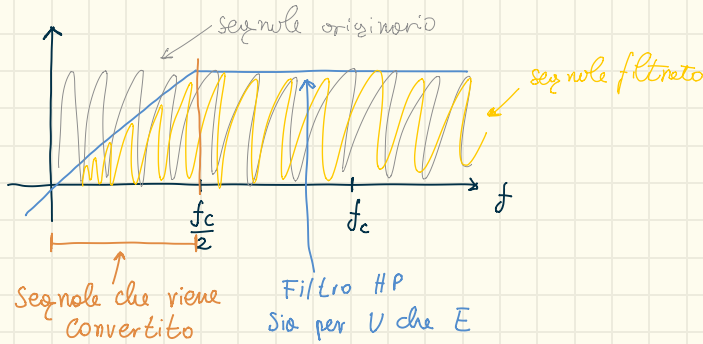 segnale originario
segnale filtrato
fc
2
fc
f
Segnale che viene
convertito
Filtro HP
Sia per U che E